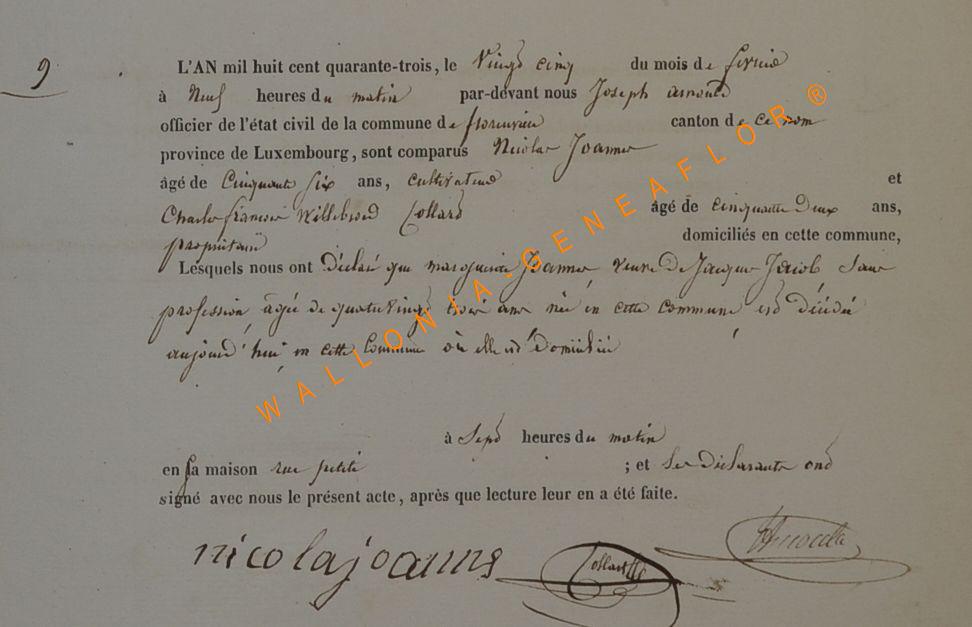 9
L'AN mil huit cent quarante-trois, le Vingt cinq du mois de fevrier
à Neuf heures du matin par-devant nous Joseph arnould
officier de l'état civil de la commune de florenville canton de ce nom
province de Luxembourg, sont comparus Nicolas Joannes
âgé de Cinquante Six ans, cultivateur et
Charles françois Willebrord Collard âgé de cinquante deux ans,
propriétaire domiciliés en cette commune,
Lesquels nous ont déclaré que marguerite Joannes veuve de Jacques Jacob Sans
profession âgée de quatrevingt trois ans née en cette commune est décédée
aujourd'hui en cette Commune où elle est Domiciliée
à Sept heures du matin
en sa maison rue petite ; et les Déclarants ont
signé avec nous le présent acte, après que lecture leur en a été faite.
nicolas joannes Collard
WALLONIA-GENEAFLOR®